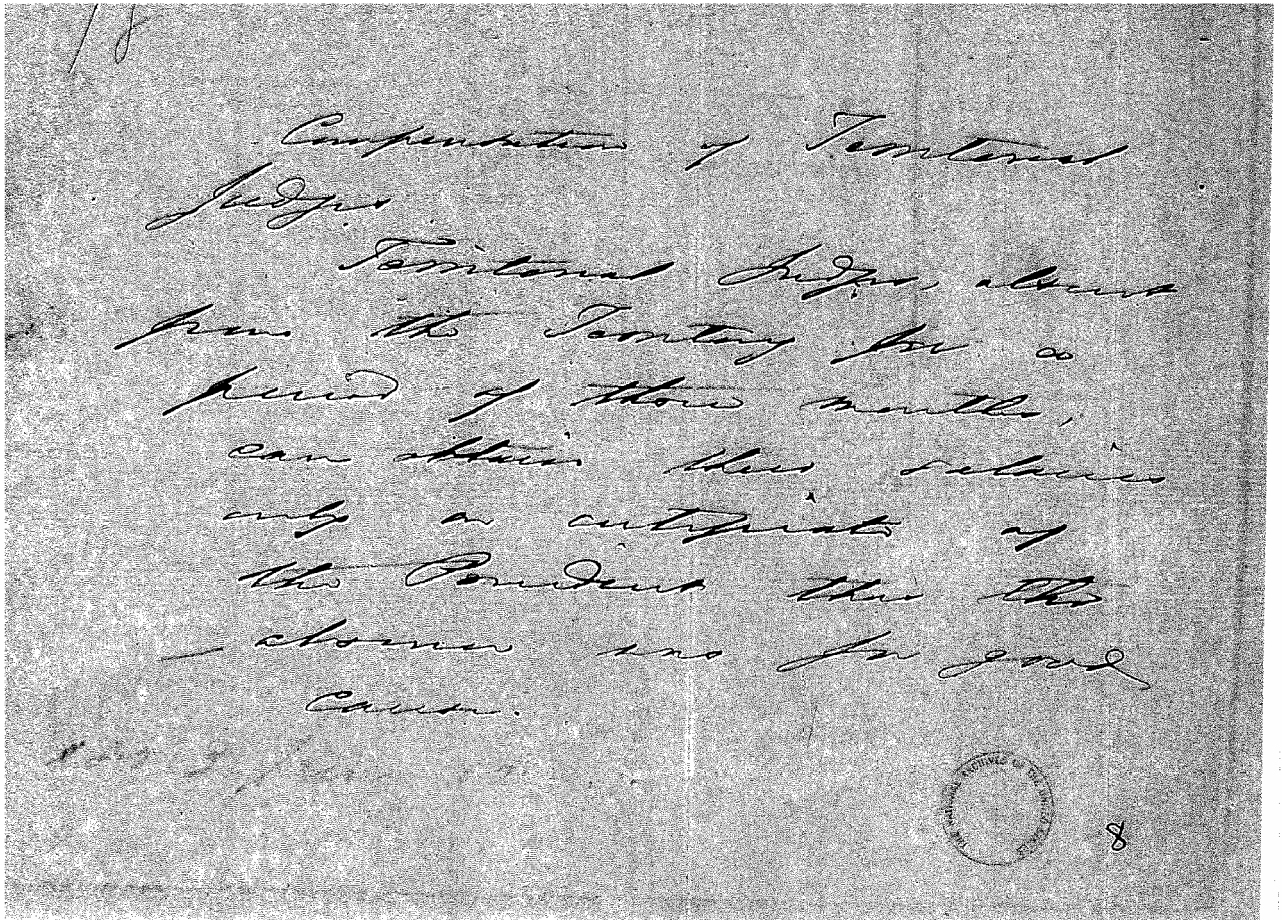 18
Compensation of Territorial
Judges.
Territorial Judges, absent
from the Territory for a
period of three months,
can obtain their salaries
only on certificate of
the President that the
absence was for good
cause.
THE NATIONAL ARCHIVES OF THE UNITED STATES
8